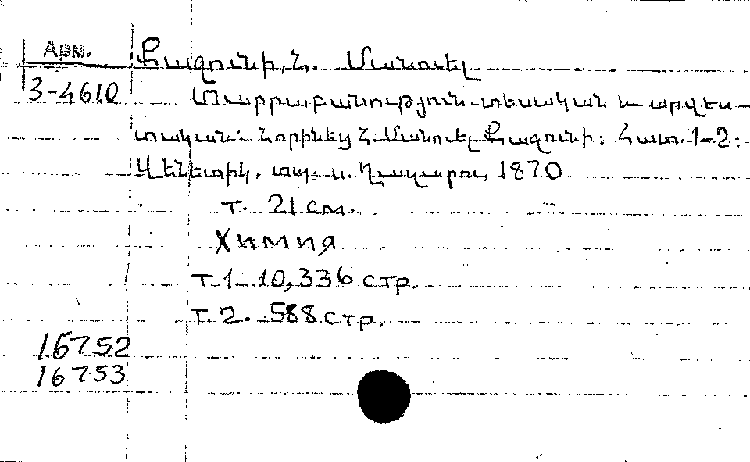 Арм.
3-4610
Քաջունի, Հ. Մանուել
Տարրաբանություն տեսական և արվես-
տական: Հորինեց Հ. Մանուել Քաջունի: Հատ. 1-2:
Վենետիկ, տպ. ս. Ղազարու, 1870
т. 21 см.
Химия
т. 1 10, 336 стр.
т. 2. 588 стр.
16752
16753